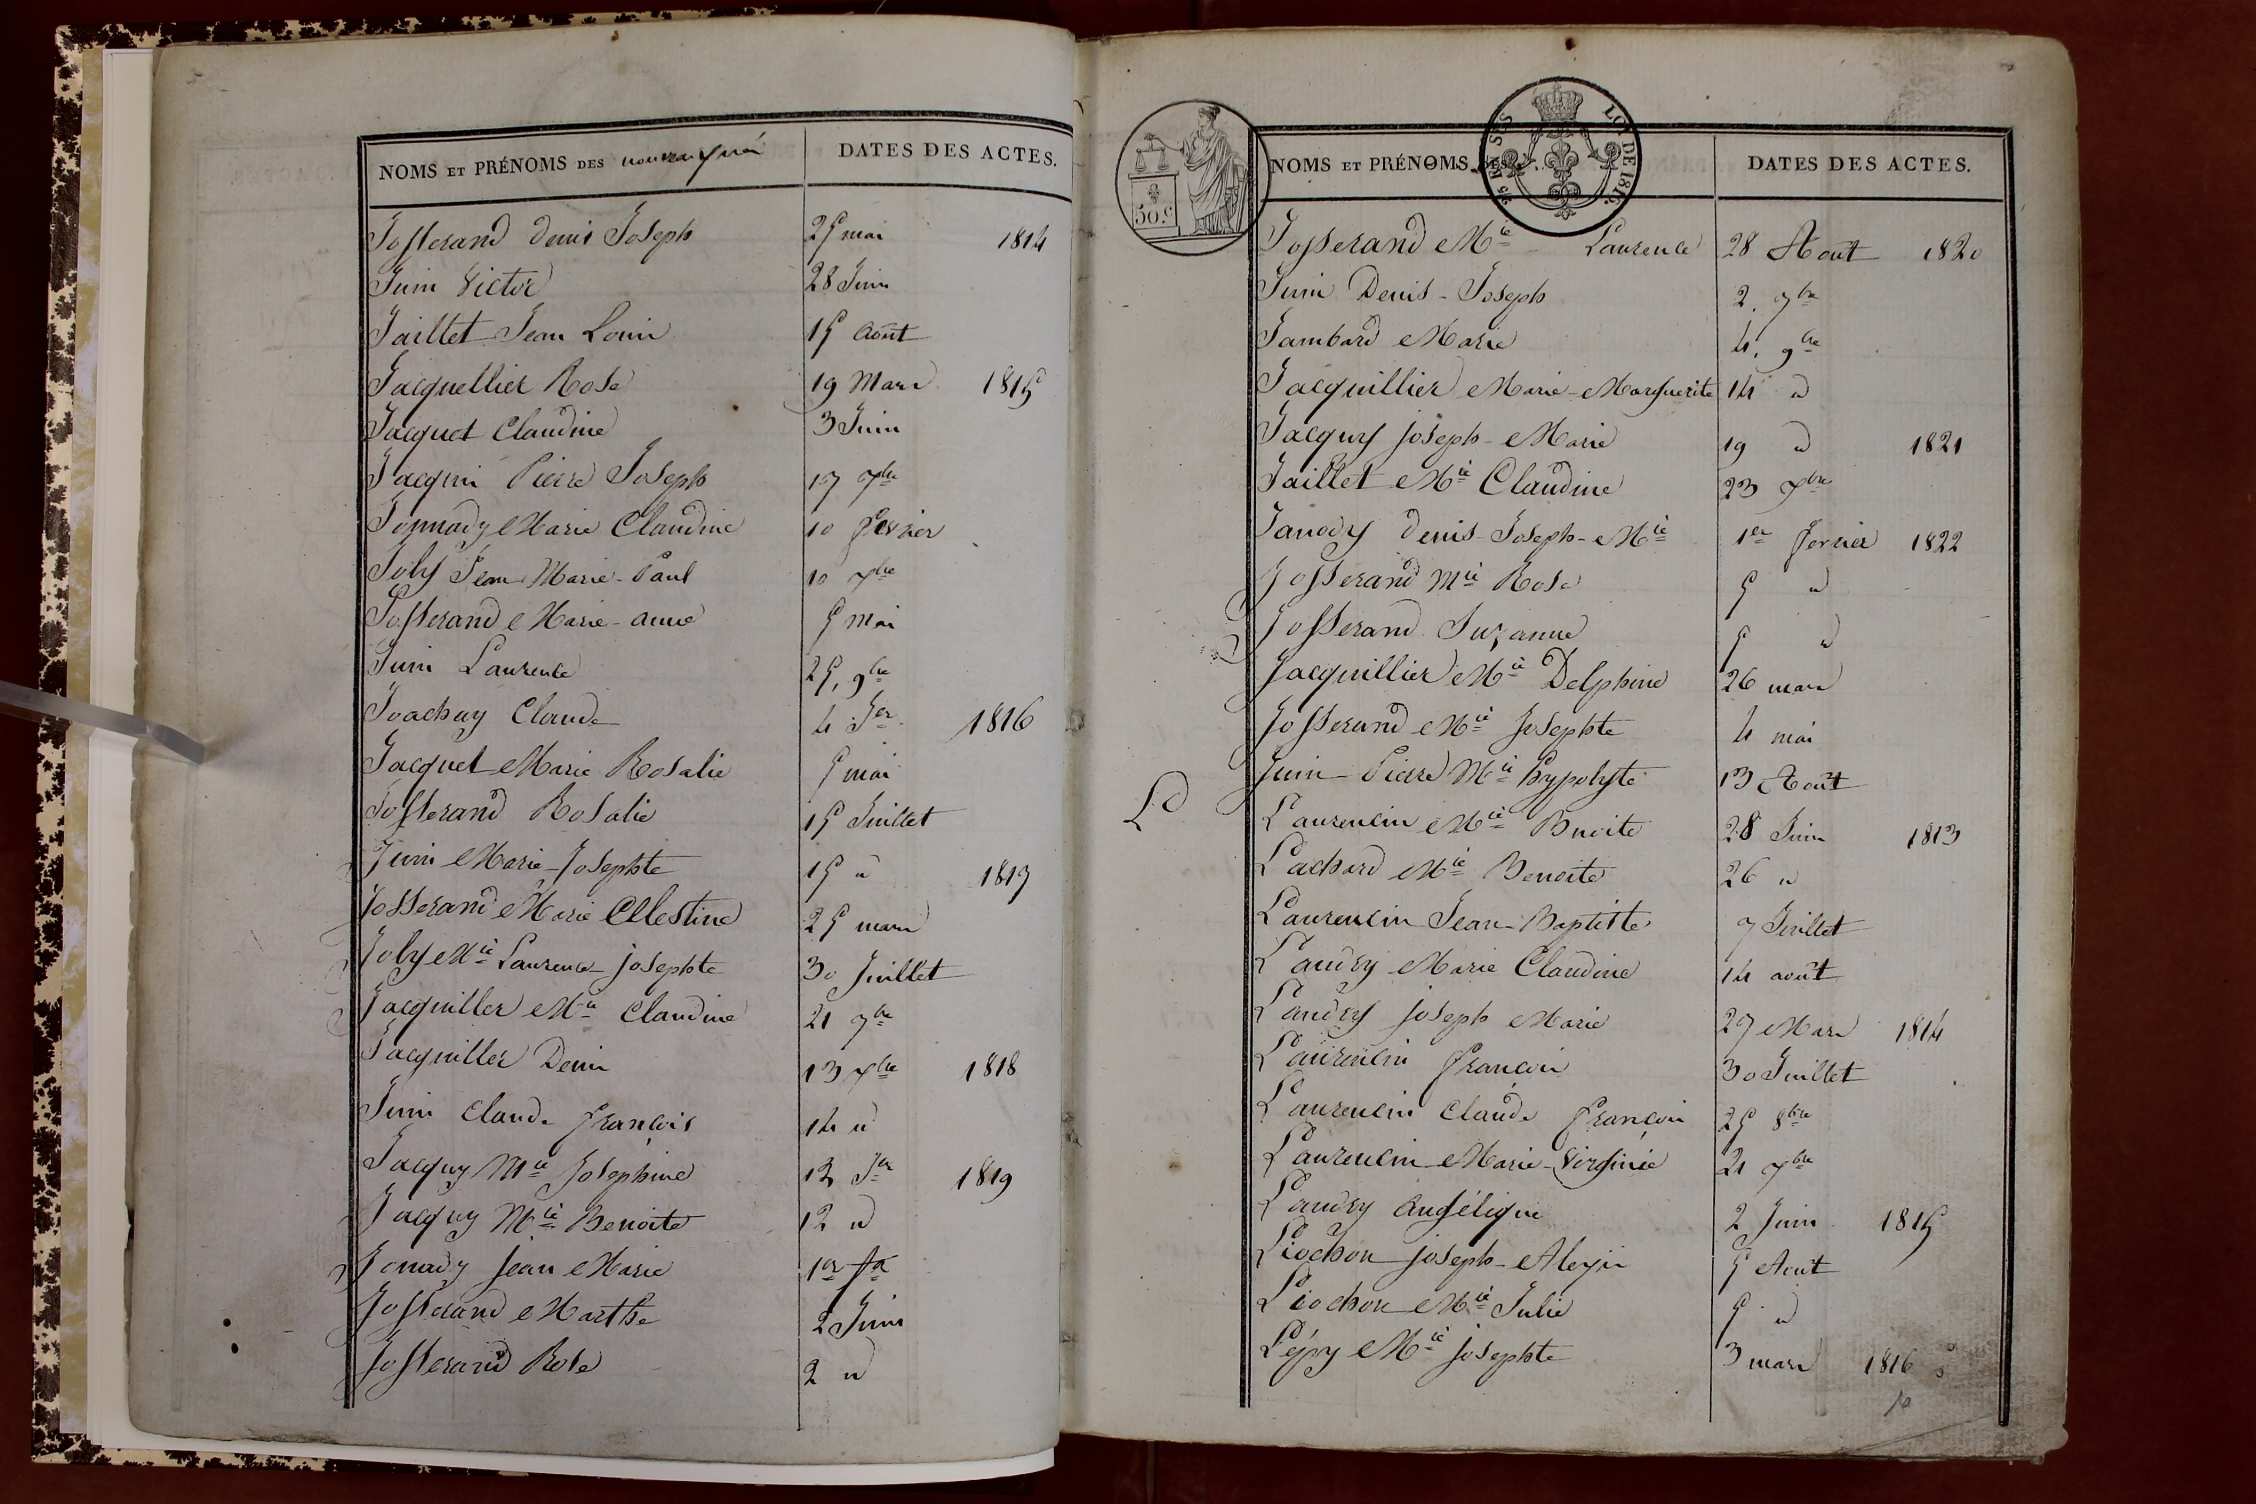 NOMS ET PRÉNOMS DES nouveaux nés DATES DES ACTES.
Josserand Denis Joseph 25 mai 1814
Juin Victor 28 Juin
Jaillet Jean Louis 15 Août
Jacquellier Rose 19 Mars 1815
Jacquet Claudine 3 Juin
Jacquin Pierre Joseph 17 Xbre
Marie Claudine 10 fevrier
Joly Jean Marie-Paul 10 Xbre
Josserand Marie-anne 5 mai
Juin Laurence 25, 9bre
Joachuy Claude 4 Jer 1816
Jacquet Marie Rosalie 5 mai
Josserand Rosalie 15 Juillet
Juin Marie-Josephte 15 d 1817
Josserand Marie Celestine 25 mars
Joly Mie Laurence Josephte 30 Juillet
Jacquiller Mie Claudine 21 7bre
Jacquiller Denis 13 Xbre 1818
Juin Claude françois 14 d
Jacquy Mie Josephine 12 Jer 1819
Jacquy Mie Benoite 12 d
Jonady Jean Marie 1er
Josserand Marthe 2 Juin
Josserand Rose 2 d
50.c
25 P. SUS
LOI DE 1816.
NOMS ET PRÉNOMS DES DATES DES ACTES.
Josserand Mie Laurence 28 Août 1820
Juin Denis-Joseph 2. 7bre
Jambard Marie 4. 9bre
Jacquillier Marie-Marguerite 14 d
Jacquy Joseph-Marie 19 d 1821
Jaillet Mie Claudine 23 Xbre
Janody Denis-Joseph-Mie 1er fevrier 1822
Josserand Mie Rose 5 d
Josserand Suzanne 5 d
Jacquillier Mie Delphine 26 mars
Josserand Mie Josephte 4 mai
Juin Pierre Mie hypolyte 13 Août
L
Laurencin Mie Bnoite 28 Juin 1813
Lachard Mie Benoite 26 d
Laurencin Jean-Baptiste 7 Juillet
Landry Marie Claudine 14 août
Landry Joseph Marie 27 Mars 1814
Laurencin François 30 Juillet
Laurencin Claude François 25 8bre
Laurencin Marie-Virginie 21 Xbre
Landry Angélique 2 Juin 1815
Liochon Joseph-Alexis 5 Aout
Liochon Mie Julie 5 d
Lépy Mie Josephte 3 mars 1816